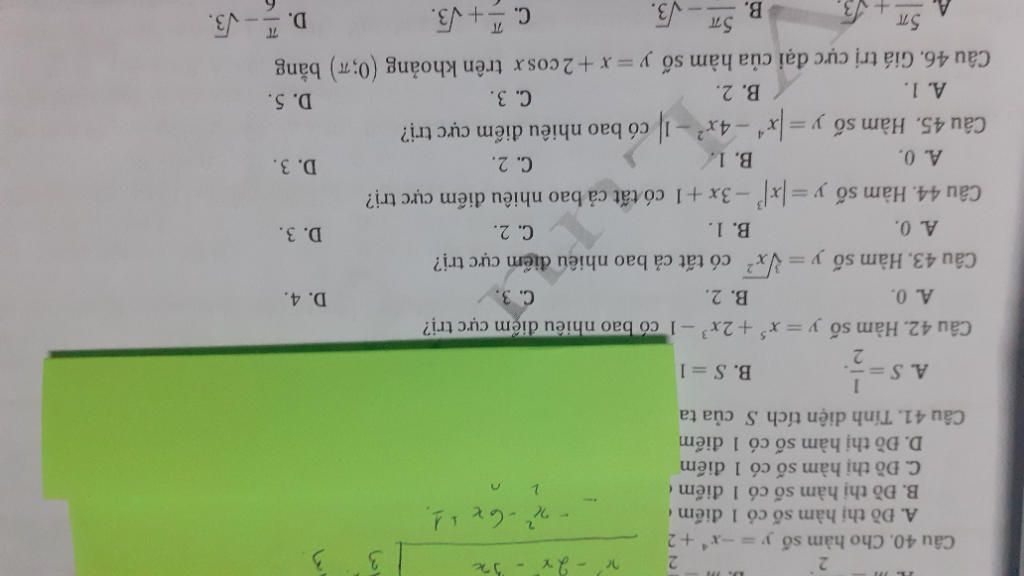 Câu 40. Cho hàm số y = −x⁴ + 2
A. Đồ thị hàm số có 1 điểm
B. Đồ thị hàm số có 1 điểm
C. Đồ thị hàm số có 1 điểm
D. Đồ thị hàm số có 1 điểm
Câu 41. Tính diện tích S của ta
A. S = 1/2. B. S = 1
Câu 42. Hàm số y = x⁵ + 2x³ − 1 có bao nhiêu điểm cực trị?
A. 0. B. 2. C. 3. D. 4.
Câu 43. Hàm số y = ∛x² có tất cả bao nhiêu điểm cực trị?
A. 0. B. 1. C. 2. D. 3.
Câu 44. Hàm số y = |x|³ − 3x + 1 có tất cả bao nhiêu điểm cực trị?
A. 0. B. 1. C. 2. D. 3.
Câu 45. Hàm số y = |x⁴ − 4x² − 1| có bao nhiêu điểm cực trị?
A. 1. B. 2. C. 3. D. 5.
Câu 46. Giá trị cực đại của hàm số y = x + 2cos x trên khoảng (0;π) bằng
A. 5π/6 + √3. B. 5π/6 − √3. C. π/6 + √3. D. π/6 − √3.
− x² − 6x + 1.